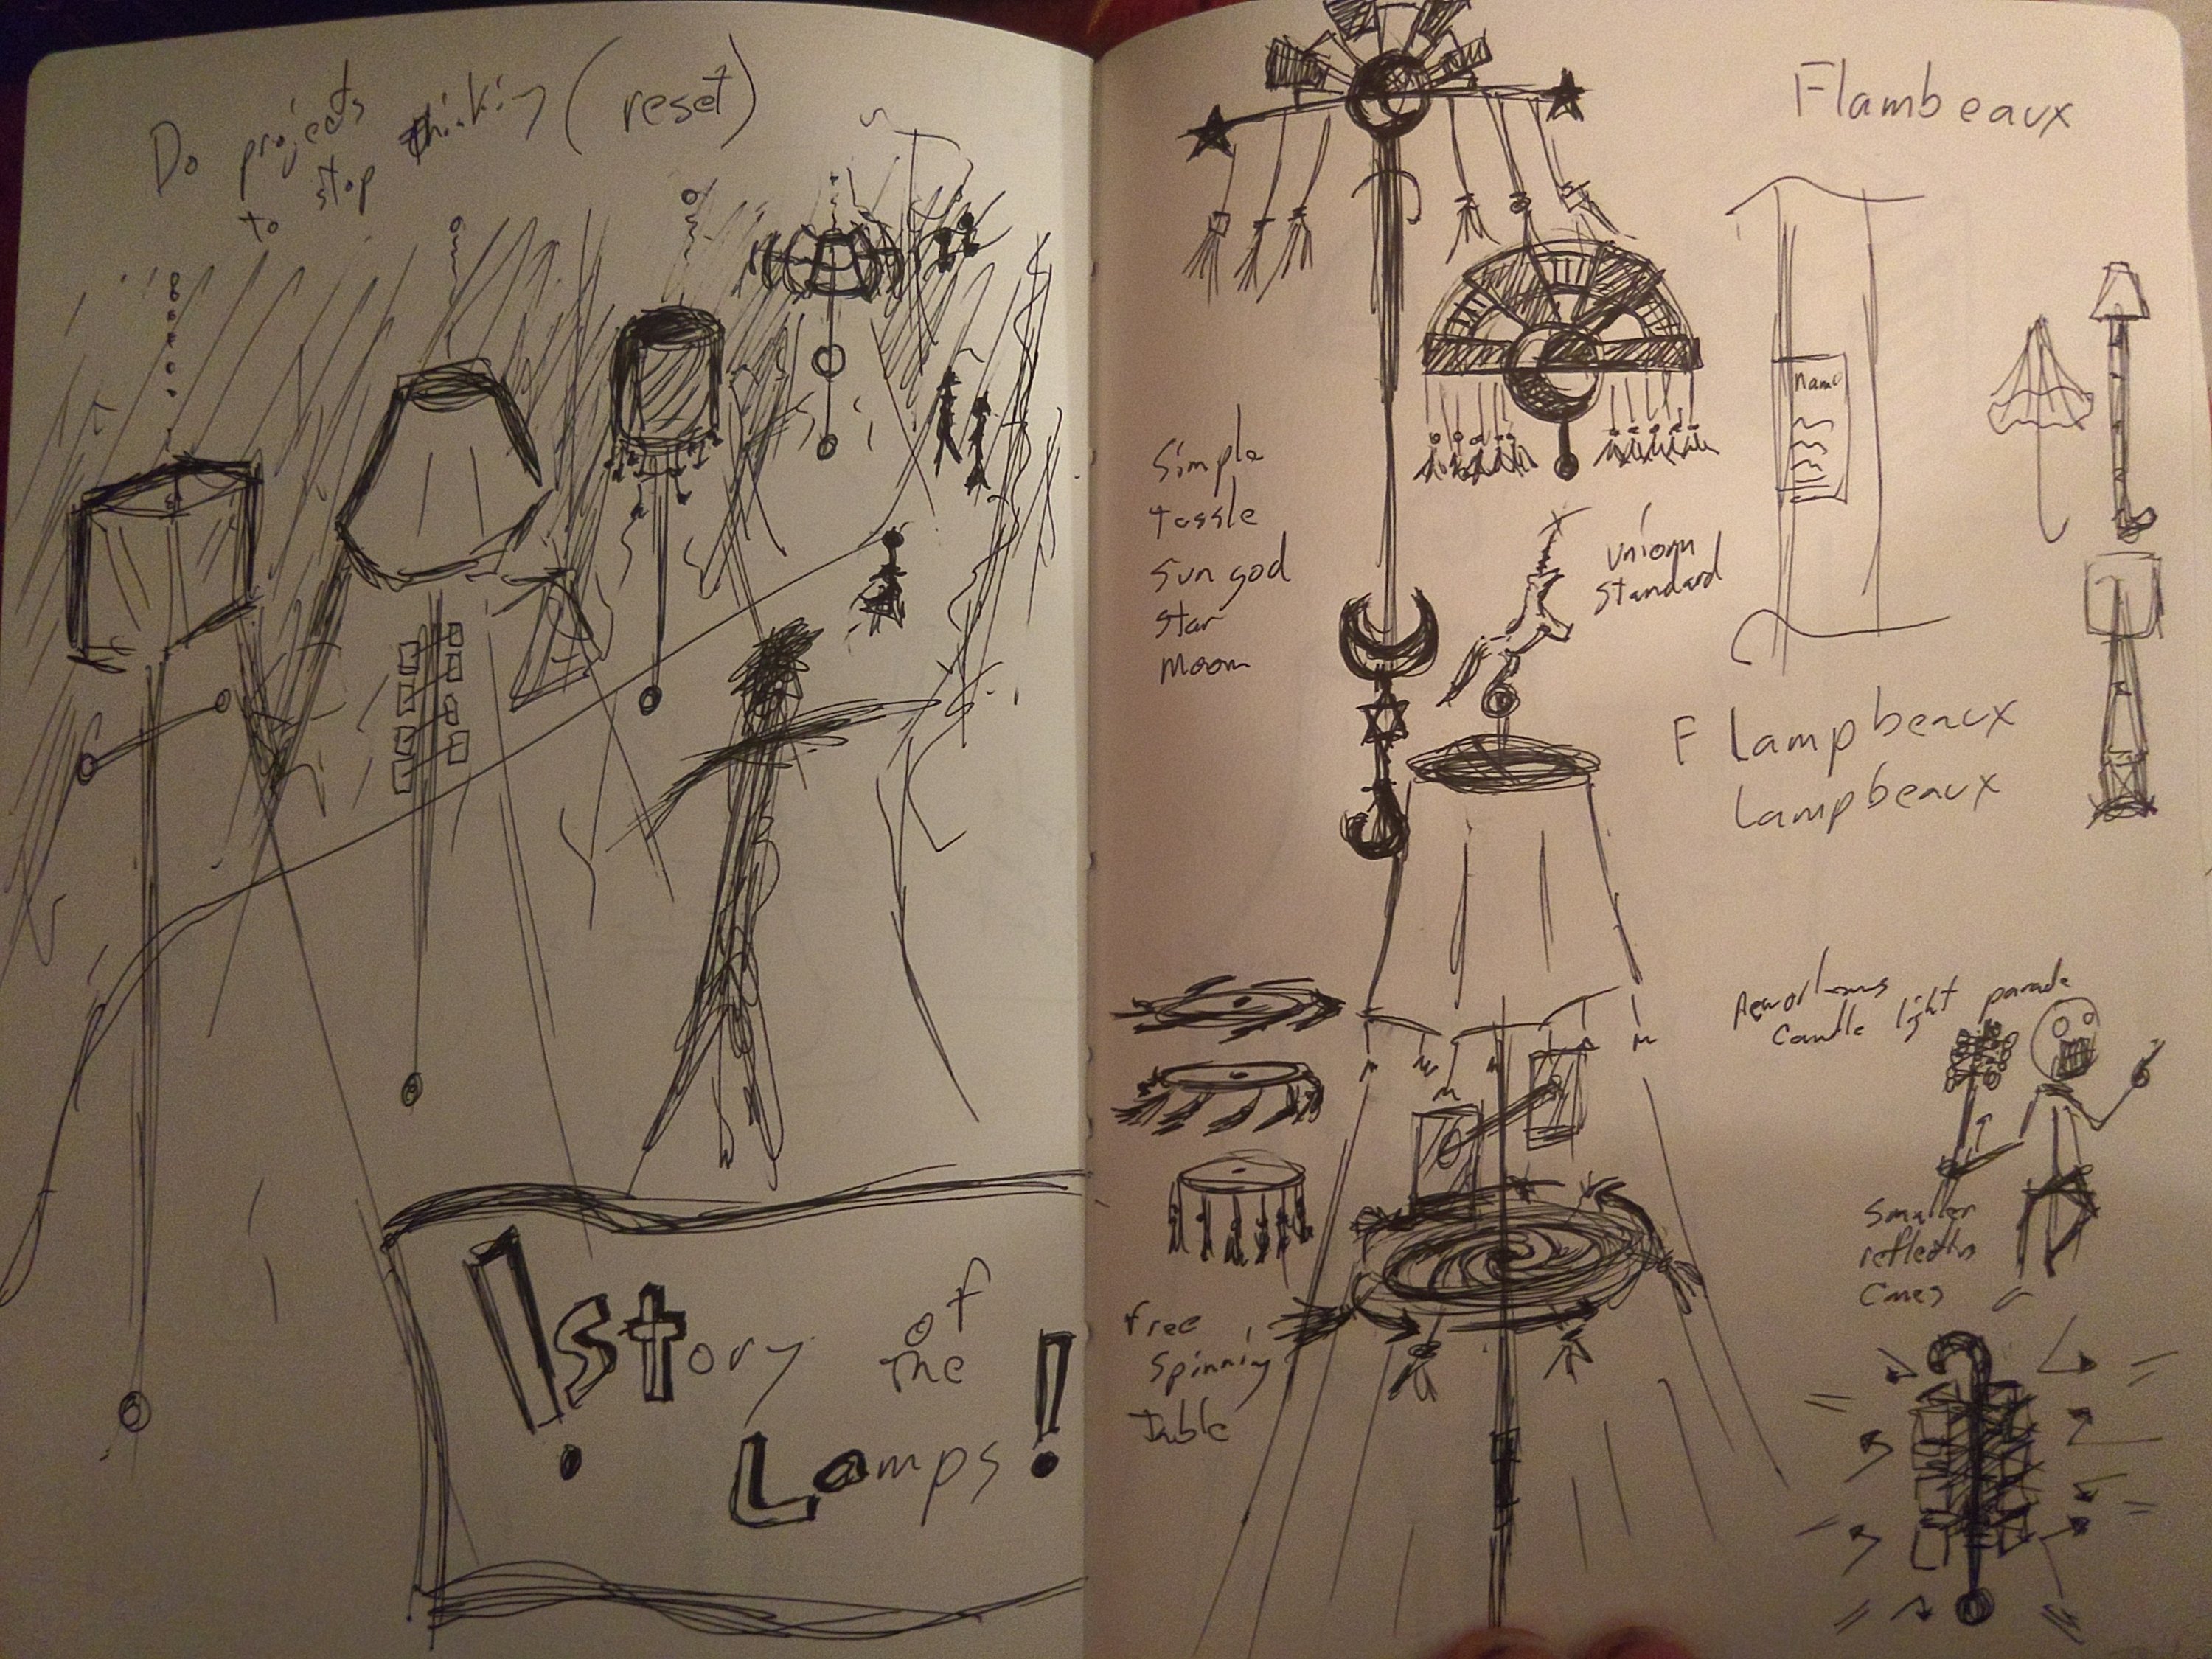 Do projects
to stop thinking (reset)
!Story of
the
Lamps!
Flambeaux
name
Simple
tassle
Sun god
Star
Moon
Uniorn
Standard
F lampbeaux
lampbeaux
Candle light parade
Smaller
Canes
free
Spinning
Table